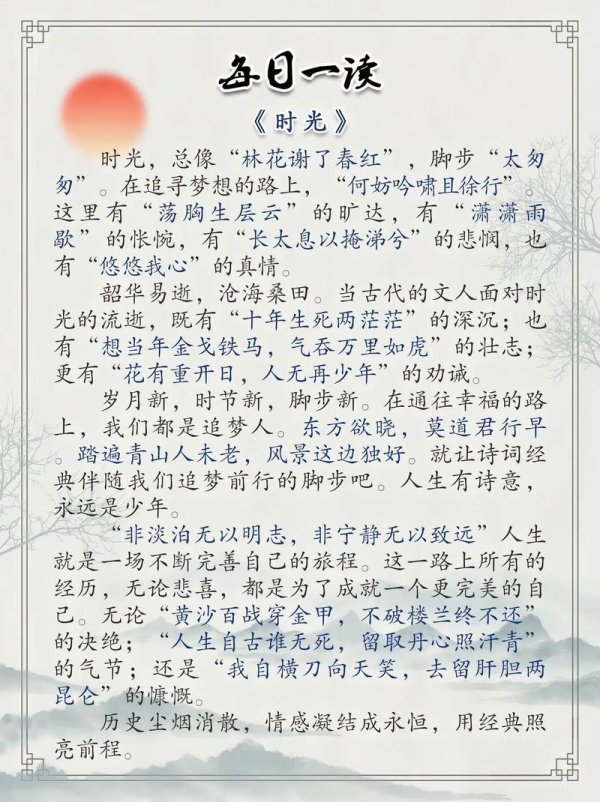 每日一读
《时光》
时光，总像“林花谢了春红”，脚步“太匆
匆”。在追寻梦想的路上，“何妨吟啸且徐行”。
这里有“荡胸生层云”的旷达，有“潇潇雨
歇”的怅惋，有“长太息以掩涕兮”的悲悯，也
有“悠悠我心”的真情。
韶华易逝，沧海桑田。当古代的文人面对时
光的流逝，既有“十年生死两茫茫”的深沉；也
有“想当年金戈铁马，气吞万里如虎”的壮志；
更有“花有重开日，人无再少年”的劝诫。
岁月新，时节新，脚步新。在通往幸福的路
上，我们都是追梦人。东方欲晓，莫道君行早
。踏遍青山人未老，风景这边独好。就让诗词经
典伴随我们追梦前行的脚步吧。人生有诗意，
永远是少年。
“非淡泊无以明志，非宁静无以致远”人生
就是一场不断完善自己的旅程。这一路上所有的
经历，无论悲喜，都是为了成就一个更完美的自
己。无论“黄沙百战穿金甲，不破楼兰终不还”
的决绝；“人生自古谁无死，留取丹心照汗青”
的气节；还是“我自横刀向天笑，去留肝胆两
昆仑”的慷慨。
历史尘烟消散，情感凝结成永恒，用经典照
亮前程。